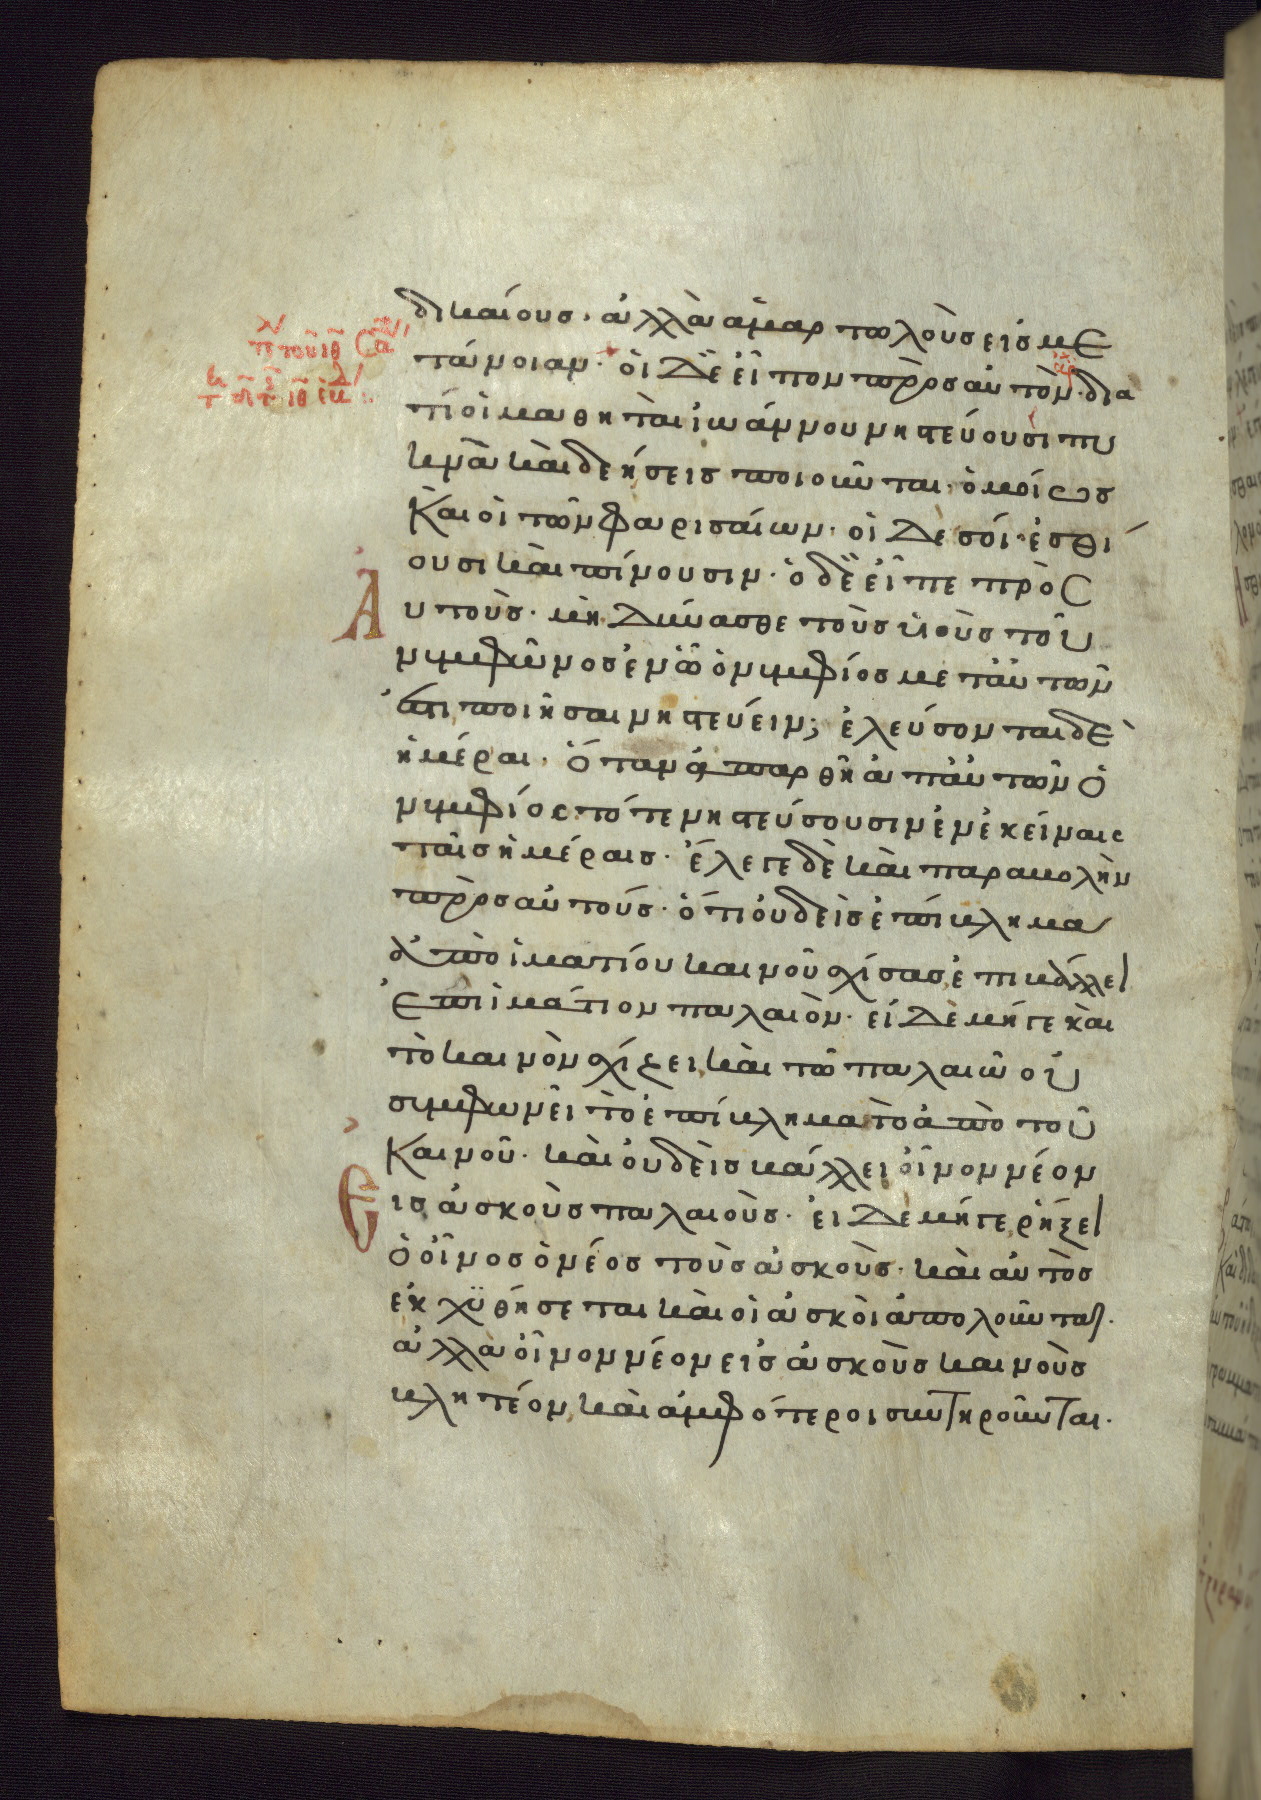 δικαίους· ἀλλὰ ἁμαρτωλοὺς εἰς με
τάνοιαν· οἱ δὲ εἶπον πρὸς αὐτόν· δια
τί οἱ μαθηταὶ ἰωάννου νηστεύουσι πυ
κνὰ καὶ δεήσεις ποιοῦνται· ὁμοίως
καὶ οἱ τῶν φαρισαίων· οἱ δε σοί· ἐσθί
ουσι καὶ πίνουσιν· ὁ δὲ εἶπε πρὸς
Αυτούς· μὴ δύνασθε τοὺς υἱοὺς τοῦ
νυμφῶνος ἐν ᾧ ὁ νυμφίος μετ' αὐτῶν
ἐστι ποιῆσαι νηστεύειν; ἐλεύσονται δὲ
ἡμέραι· ὅταν ἀπαρθῇ ἀπ' αὐτῶν ὁ
νυμφίος τότε νηστεύσουσιν ἐν ἐκείναις
ταῖς ἡμέραις· ἔλεγε δὲ καὶ παραβολὴν
πρὸς αὐτούς· ὅτι οὐδεὶς ἐπίβλημα
ἀπὸ ἱματίου καινοῦ σχίσας ἐπιβάλλει
ἐπι ἱμάτιον παλαιόν· εἰ δὲ μήγε καὶ
τὸ καινὸν σχίζει καὶ τῷ παλαιῷ οὐ
συμφωνεῖ τὸ ἐπίβλημα τὸ ἀπὸ τοῦ
καινοῦ· καὶ οὐδεὶς βάλλει οἶνον νέον
Εις ἀσκοὺς παλαιούς· εἰ δὲ μήγε ῥήξει
ὁ οἶνος ὁ νέος τοὺς ἀσκούς· καὶ αὐτὸς
ἐκχυθήσεται καὶ οἱ ἀσκοὶ ἀπολοῦνται·
ἀλλὰ οἶνον νέον εἰς ἀσκοὺς καινοὺς
βλητέον καὶ ἀμφότεροι συντηροῦνται·